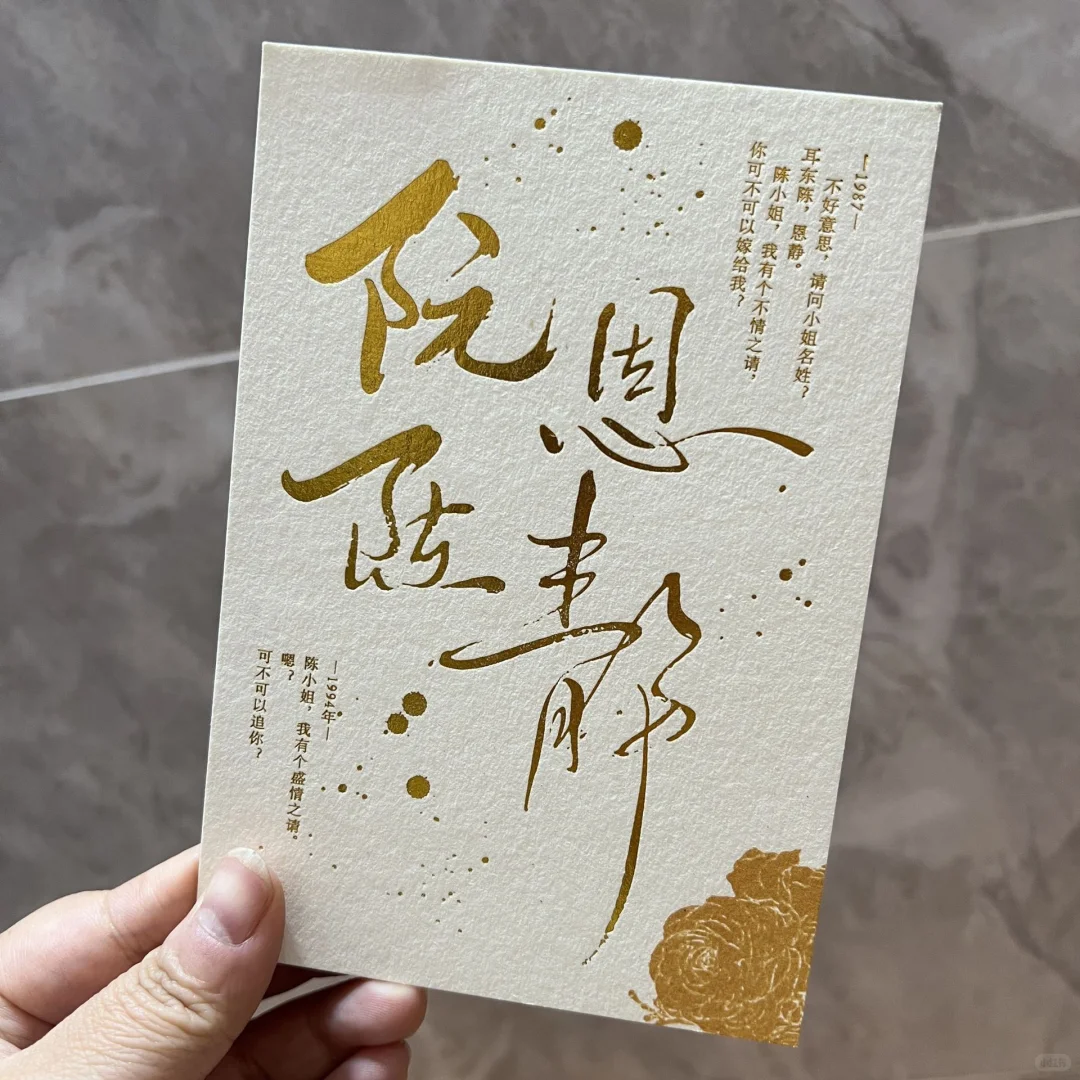 阮陈
恩静
—1987—
不好意思，请问小姐名姓？
耳东陈，恩静。
陈小姐，我有个不情之请，
你可不可以嫁给我？
—1994年—
陈小姐，我有个盛情之请。
嗯？
可不可以追你？